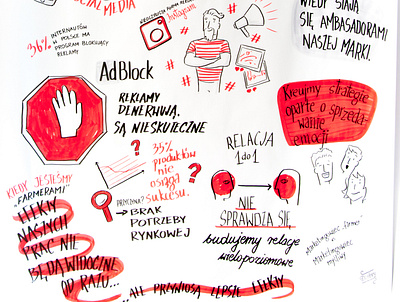 SOCIAL MEDIA
36%
INTERNAUTÓW
W POLSCE MA
PROGRAM BLOKUJĄCY
REKLAMY
Instagram
# # # # #
WTEDY STAJĄ
SIĘ AMBASADORAMI
NASZEJ MARKI.
AdBlock
REKLAMY
DENERWUJĄ.
SĄ NIESKUTECZNE
Kreujmy strategie
oparte o sprzeda-
wanie
emocji
35%
produktów
nie
osiąga
sukcesu.
?
?
PRZYCZYNA?
→ BRAK
POTRZEBY
RYNKOWEJ
RELACJA
1 do 1
NIE
SPRAWDZA SIĘ,
budujemy relacje
wielopoziomowe
KIEDY JESTEŚMY
„FARMERAMI”
EFEKTY
NASZYCH
PRAC NIE
BĘDĄ WIDOCZNE
OD RAZU...
...ALE PRZYNIOSĄ LEPSZE EFEKTY
Marketingowiec farmer
Marketingowiec
myśliwy